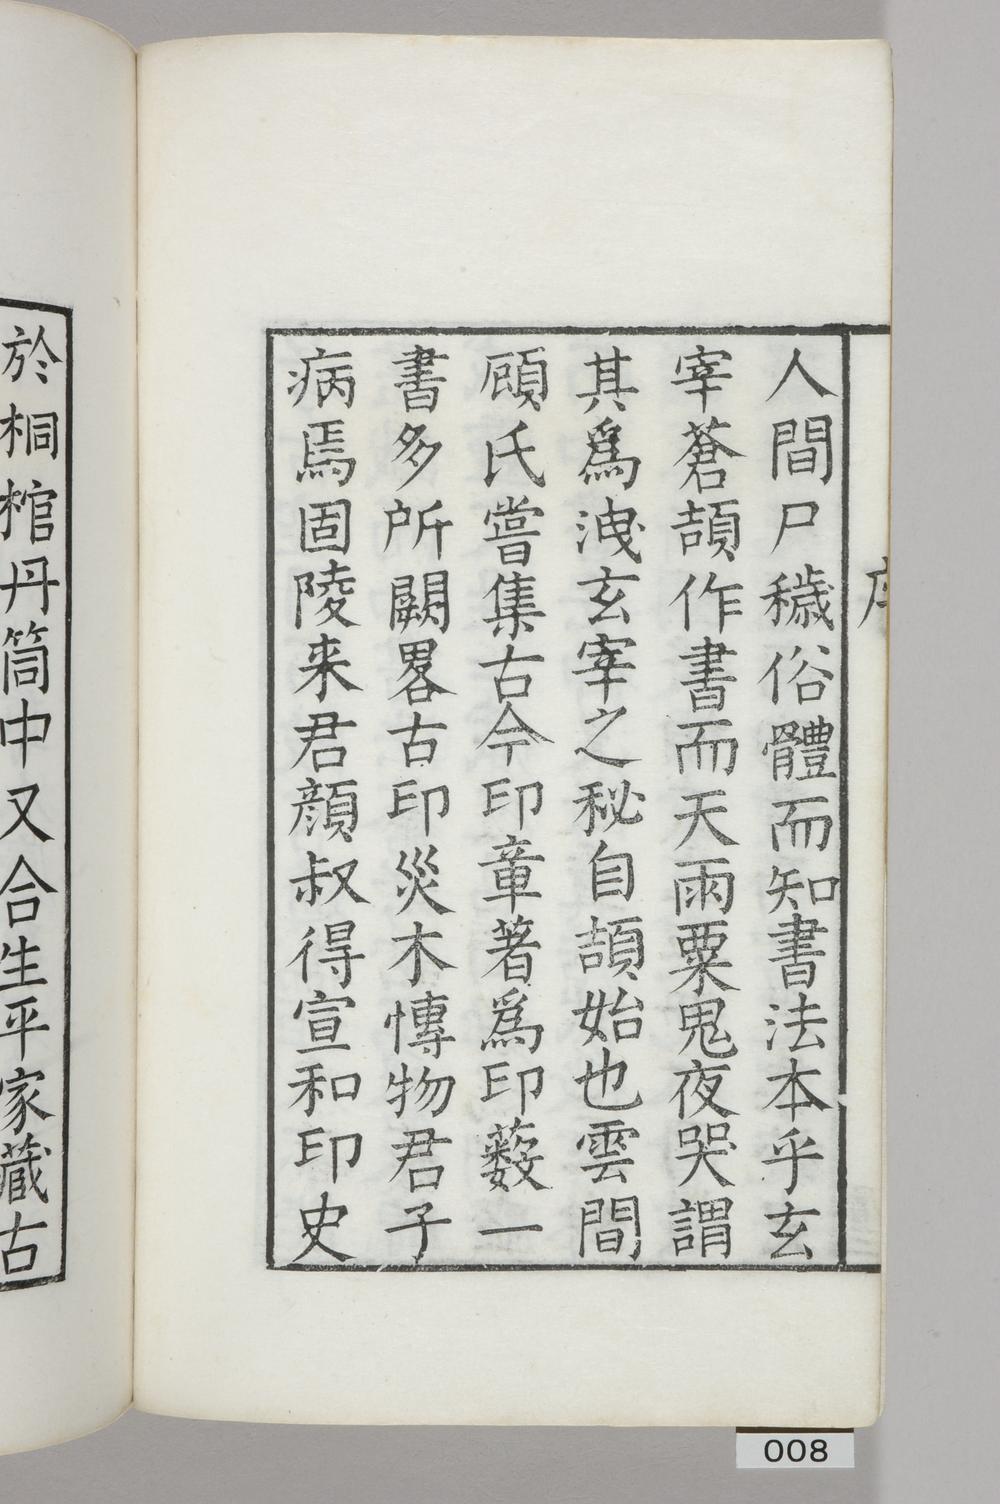 序
人間尸穢俗體而知書法本乎玄
宰蒼頡作書而天雨粟鬼夜哭謂
其爲洩玄宰之秘自頡始也雲間
顧氏嘗集古今印章著爲印藪一
書多所闕畧古印災木慱物君子
病焉固陵来君顏叔得宣和印史
於桐棺丹筒中又合生平家藏古
008